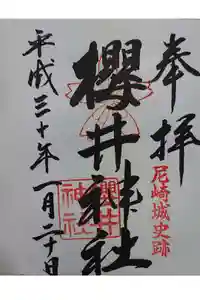 奉拝
尼崎城史跡
櫻井神社
櫻井神社
平成三十年一月二十日